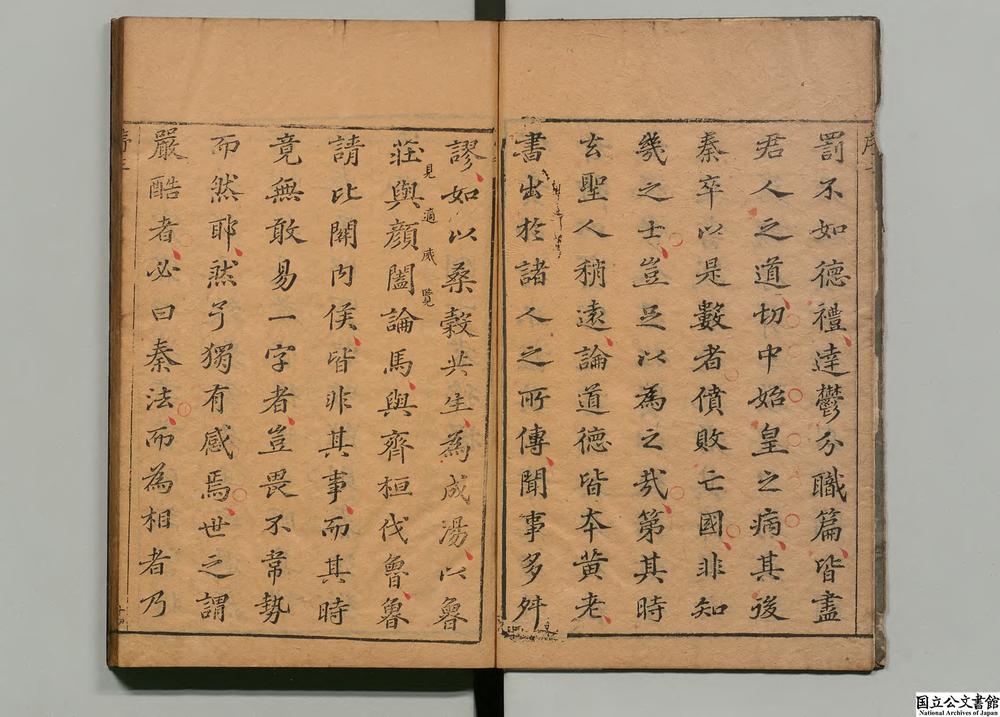 罰不如德禮達鬱分職篇皆盡
君人之道切中始皇之病其後
秦卒以是數者僨敗亡國非知
幾之士豈足以為之哉第其時
去聖人稍遠論道德皆本黃老
書出於諸人之所傳聞事多舛
謬如以桑穀共生為成湯以魯
見適威覽
莊與顏闔論馬與齊桓伐魯魯
請比關內侯皆非其事而其時
竟無敢易一字者豈畏不常勢
而然耶然予獨有感焉世之謂
嚴酷者必曰秦法而為相者乃
国立公文書館
National Archives of Japan